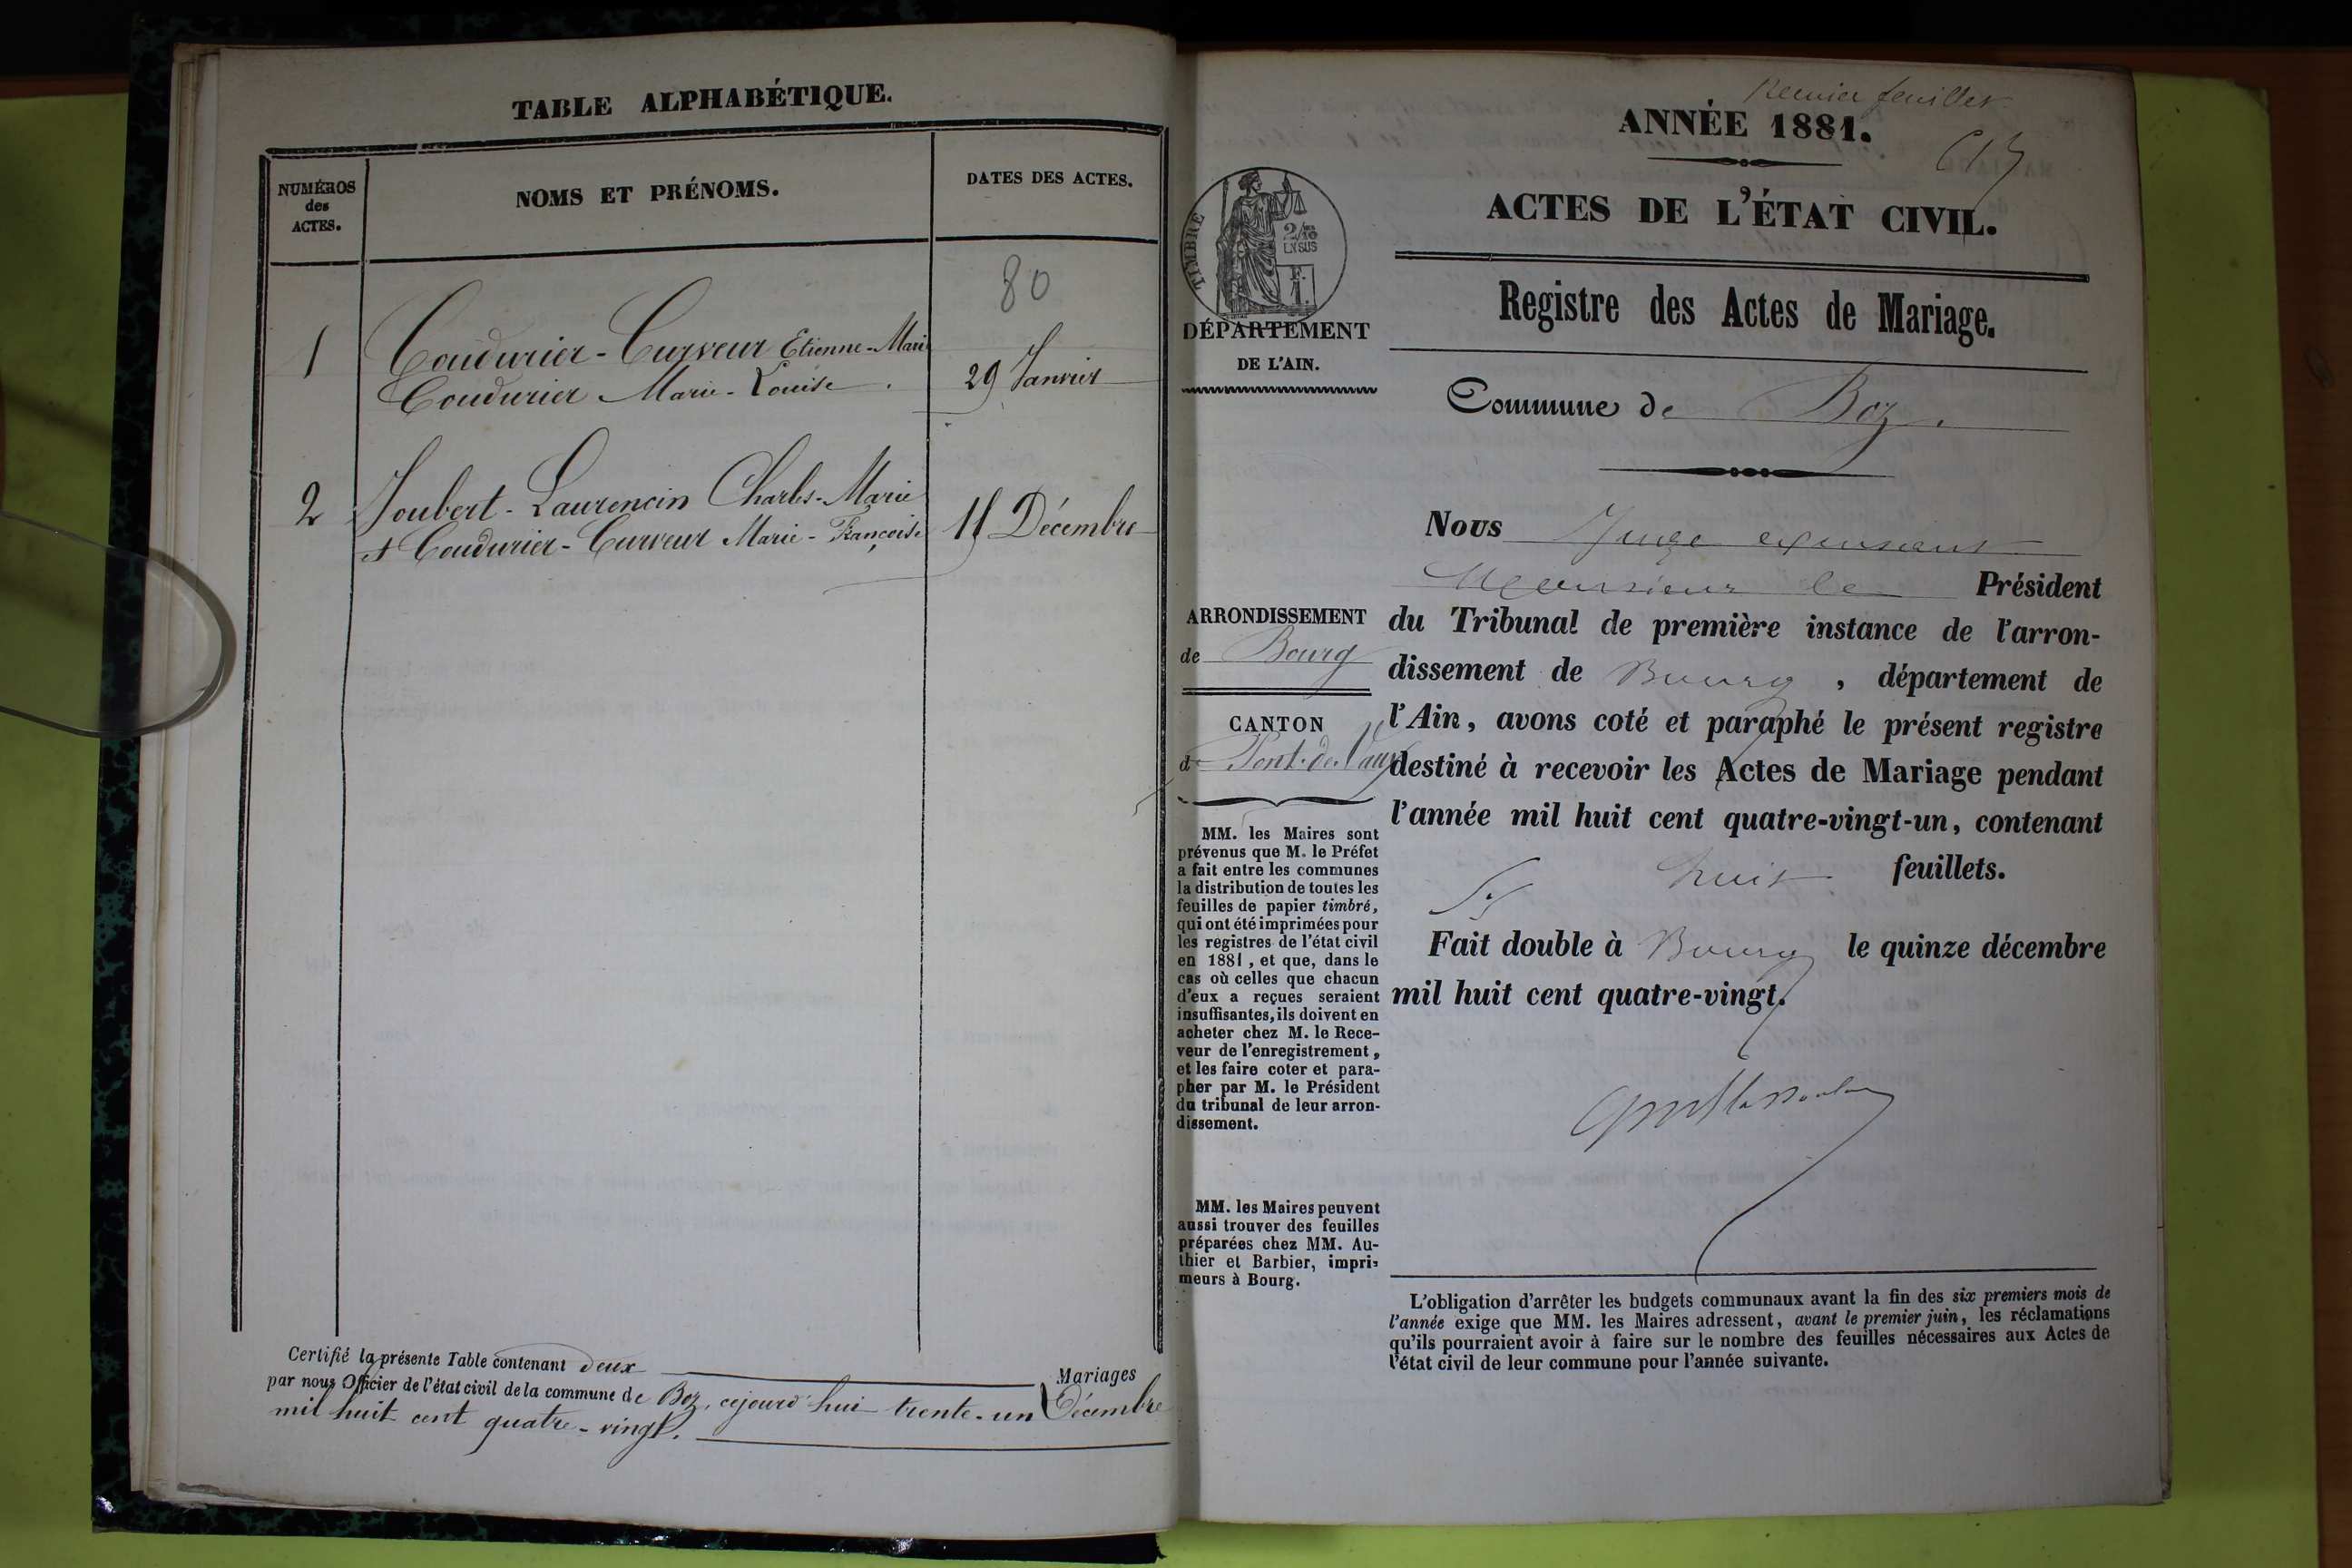 TABLE ALPHABÉTIQUE.
NUMÉROS
des
ACTES.
NOMS ET PRÉNOMS.
DATES DES ACTES.
80
1
Coudurier-Curveur Etienne-Marie
Coudurier Marie-Louise.
29 Janvier
2
Joubert-Laurencin Charles-Marie
et Coudurier-Curveur Marie-Françoise
11 Décembre
Certifié la présente Table contenant deux Mariages
par nous Officier de l'état civil de la commune de Boz, cejourd'hui trente-un Décembre
mil huit cent quatre-vingt.
Premier feuillet
ANNÉE 1881.
ACTES DE L'ÉTAT CIVIL.
Registre des Actes de Mariage.
Commune de Boz.
TIMBRE
2/10
EN SUS
DÉPARTEMENT
DE L'AIN.
ARRONDISSEMENT
de Bourg
CANTON
de Pont-de-Vaux
MM. les Maires sont
prévenus que M. le Préfet
a fait entre les communes
la distribution de toutes les
feuilles de papier timbré,
qui ont été imprimées pour
les registres de l'état civil
en 1881, et que, dans le
cas où celles que chacun
d'eux a reçues seraient
insuffisantes, ils doivent en
acheter chez M. le Rece-
veur de l'enregistrement,
et les faire coter et para-
pher par M. le Président
du tribunal de leur arron-
dissement.
MM. les Maires peuvent
aussi trouver des feuilles
préparées chez MM. Au-
thier et Barbier, impri-
meurs à Bourg.
Nous Juge
Monsieur le Président
du Tribunal de première instance de l'arron-
dissement de Bourg, département de
l'Ain, avons coté et paraphé le présent registre
destiné à recevoir les Actes de Mariage pendant
l'année mil huit cent quatre-vingt-un, contenant
huit feuillets.
Fait double à Bourg le quinze décembre
mil huit cent quatre-vingt.
L'obligation d'arrêter les budgets communaux avant la fin des six premiers mois de
l'année exige que MM. les Maires adressent, avant le premier juin, les réclamations
qu'ils pourraient avoir à faire sur le nombre des feuilles nécessaires aux Actes de
l'état civil de leur commune pour l'année suivante.